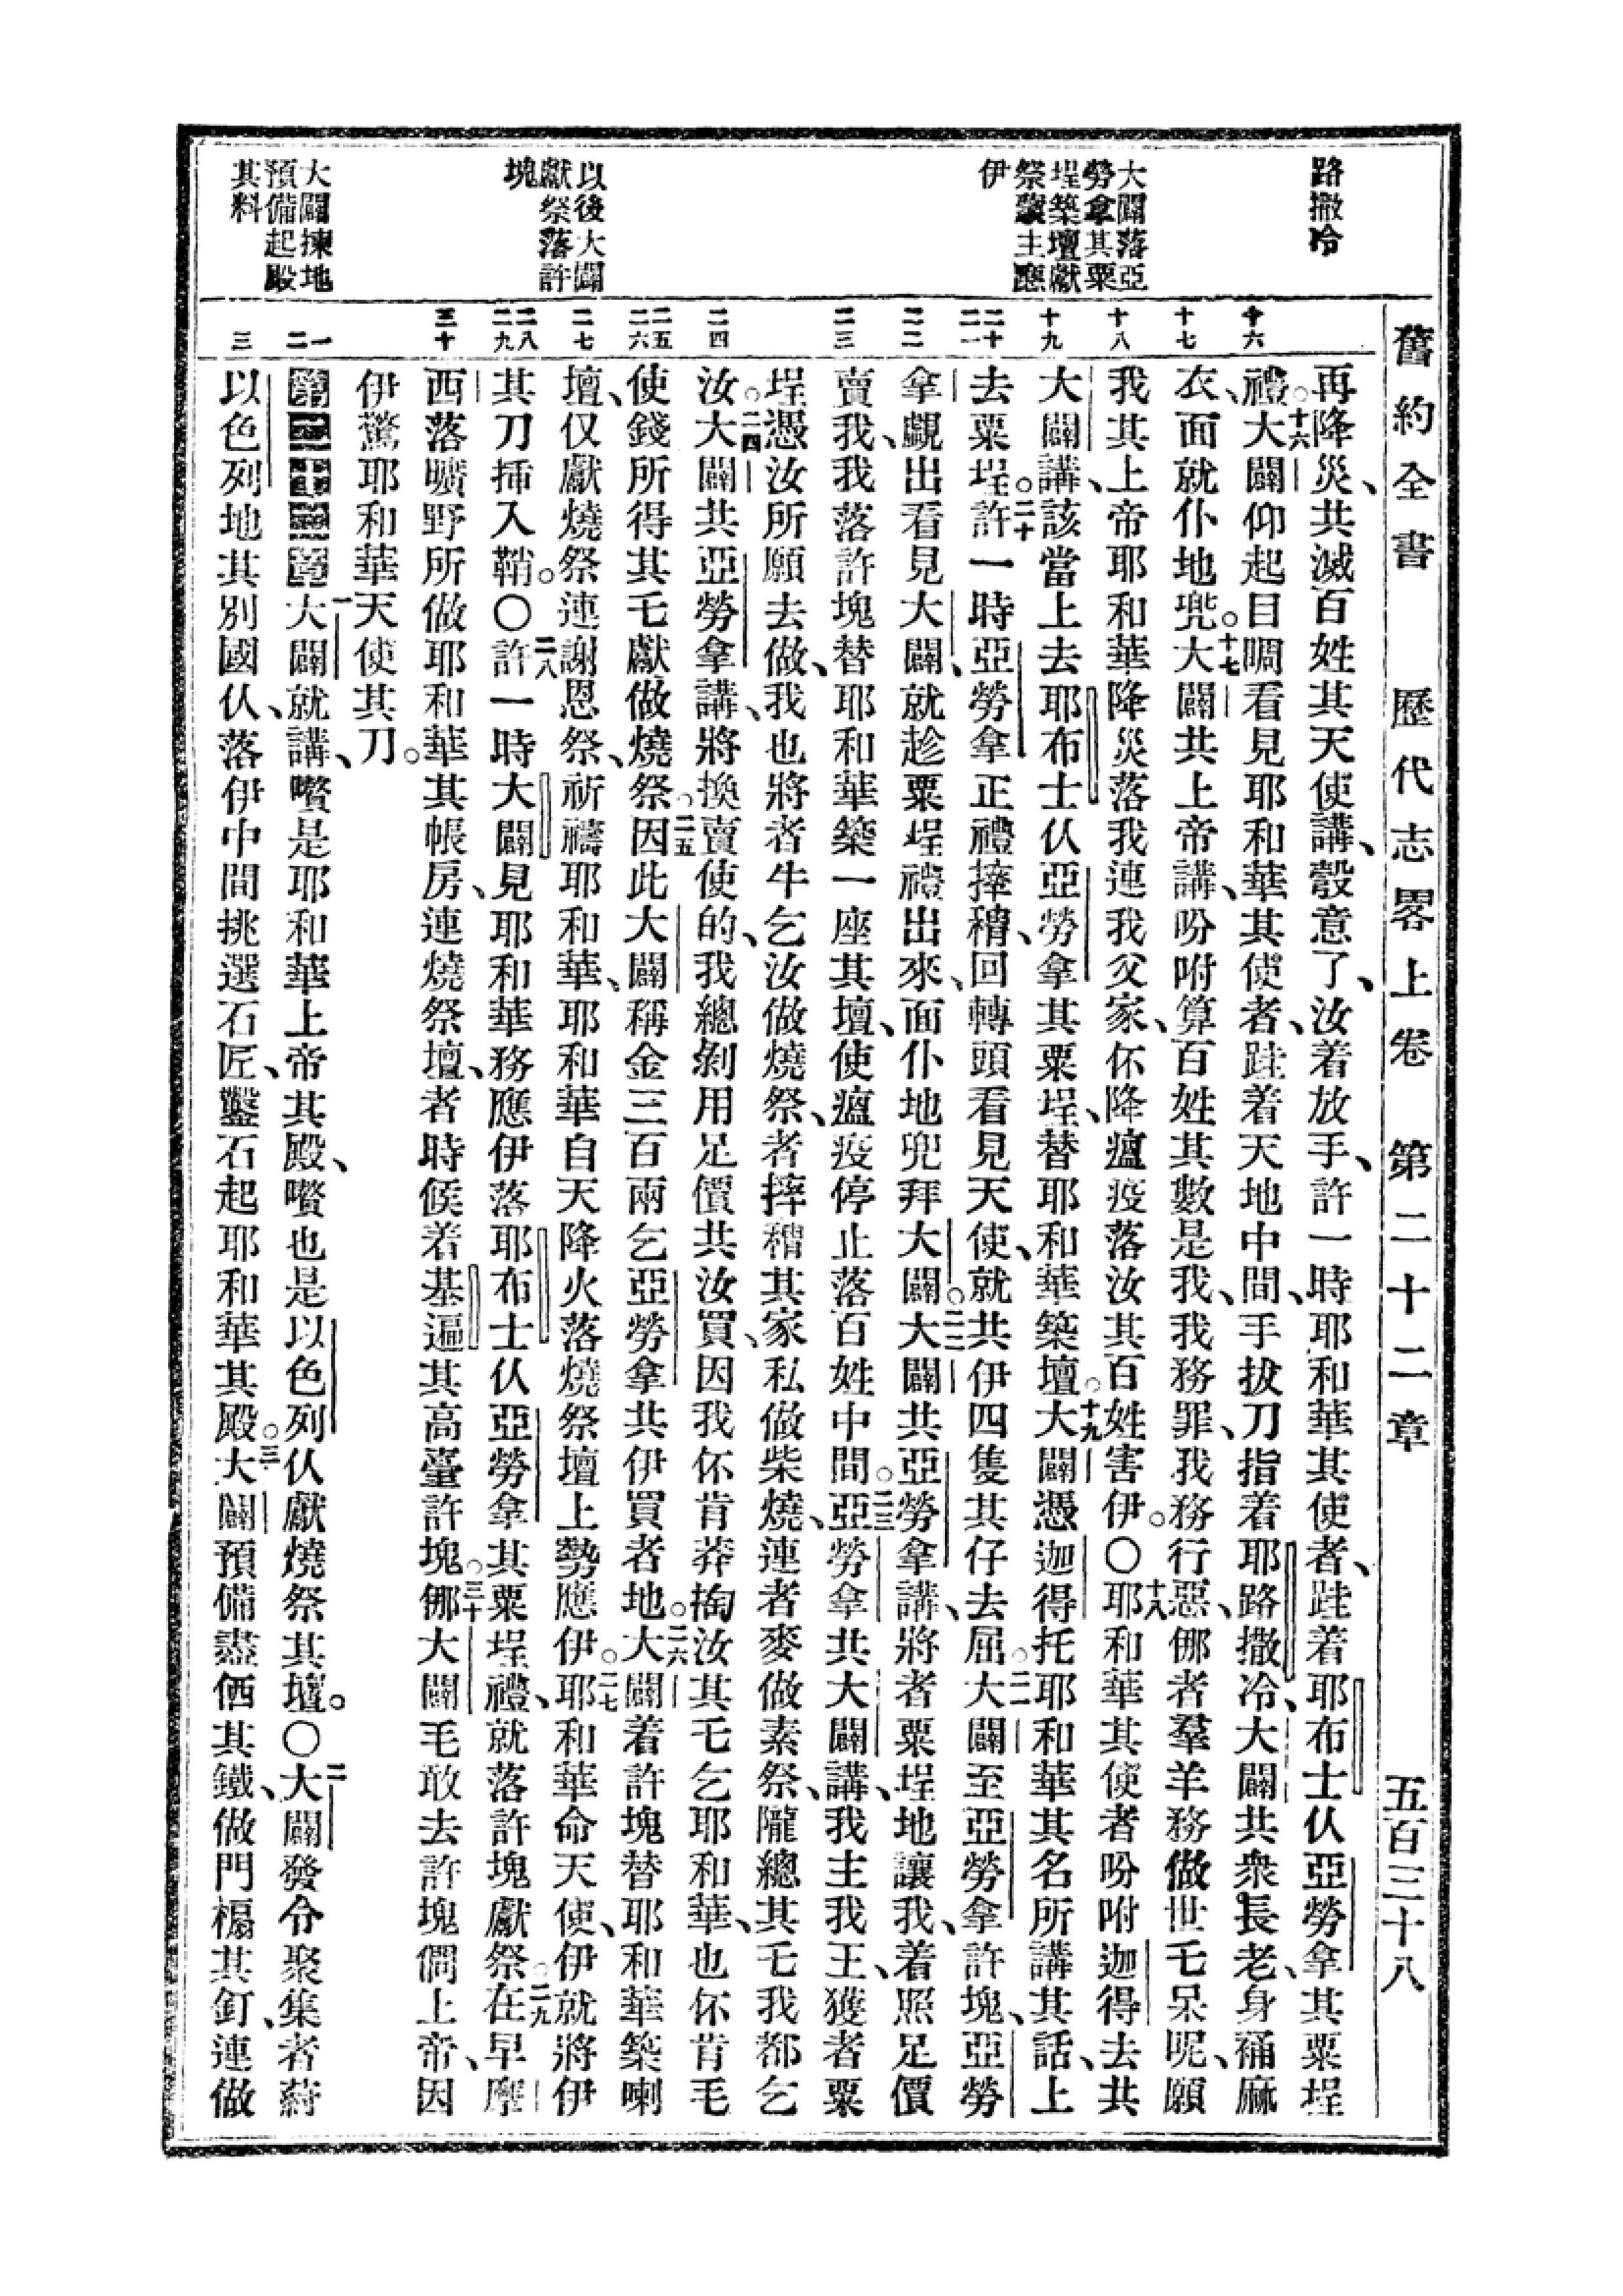 舊約全書 歷代志畧上卷 第二十二章 五百三十八
路撒冷
大闢落亞
勞拿其粟
埕築壇獻
祭蒙主應
伊
以後大闢
獻祭落許
塊
大闢揀地
預備起殿
其料
十六
十七
十八
十九
二十
二一
二二
二三
二四
二五
二六
二七
二八
二九
三十
一
二
三
再降災、共滅百姓其天使講、彀意了、汝着放手、許一時耶和華其使者、跬着耶布士仫亞勞拿其粟埕
禮。十六大闢仰起目睭看見耶和華其使者、跬着天地中間、手拔刀指着耶路撒冷、大闢共衆長老、身穪麻
衣、面就仆地兜。十七大闢共上帝講、吩咐算百姓其數是我、我務罪、我務行惡、㑚者羣羊務做世乇呆呢、願
我其上帝耶和華降災落我連我父家、伓降瘟疫落汝其百姓害伊。〇十八耶和華其使者吩咐迦得去共
大闢講、該當上去耶布士仫亞勞拿其粟埕、替耶和華築壇。十九大闢憑迦得托耶和華其名所講其話、上
去粟埕。二十許一時亞勞拿正禮摔䅯、回轉頭看見天使、就共伊四隻其仔去屈。二一大闢至亞勞拿許塊、亞勞
拿覷出看見大闢、就趁粟埕禮出來、面仆地兜拜大闢。二二大闢共亞勞拿講、將者粟埕地讓我、着照足價
賣我、我落許塊替耶和華築一座其壇、使瘟疫停止落百姓中間。二三亞勞拿共大闢講、我主我王、獲者粟
埕憑汝所願去做、我也將者牛乞汝做燒祭、者摔䅯其家私做柴燒、連者麥做素祭、隴總其乇我都乞
汝。二四大闢共亞勞拿講、將換賣使的、我總剝用足價共汝買、因我伓肯莽掏汝其乇乞耶和華、也伓肯毛
使錢所得其乇獻做燒祭。二五因此大闢稱金三百兩乞亞勞拿共伊買者地。二六大闢着許塊替耶和華築喇
壇、仅獻燒祭連謝恩祭、祈禱耶和華、耶和華自天降火落燒祭壇上勢應伊。二七耶和華命天使、伊就將伊
其刀揷入鞘。〇二八許一時大闢見耶和華務應伊落耶布士仫亞勞拿其粟埕禮、就落許塊獻祭。二九在早摩
西落曠野所做耶和華其帳房、連燒祭壇、者時候着基遍其高臺許塊。三十㑚大闢毛敢去許塊僩上帝、因
伊驚耶和華天使其刀。
第二十二章一大闢就講、嚽是耶和華上帝其殿、嚽也是以色列仫獻燒祭其壇。〇二大闢發令聚集者蒞
以色列地其別國仫、落伊中間挑選石匠、鑿石起耶和華其殿。三大闢預備盡價其鐵、做門楄其釘、連做